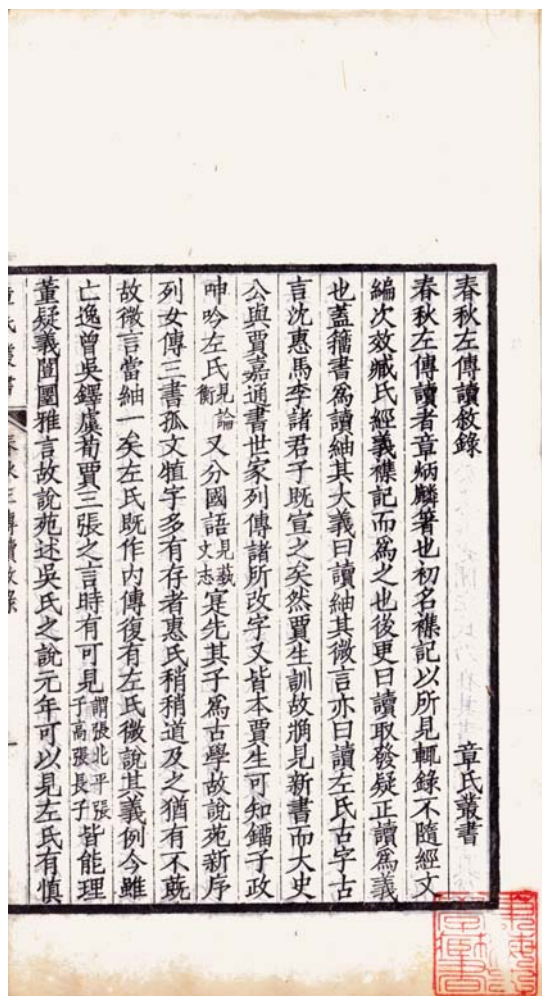 春秋左傳讀敘錄 章氏叢書
春秋左傳讀者章炳麟箸也初名襍記以所見輒錄不隨經文
編次效臧氏經義襍記而爲之也後更曰讀取發疑正讀爲義
也蓋籒書爲讀紬其大義曰讀紬其微言亦曰讀左氏古字古
言沈惠馬李諸君子既宣之矣然賈生訓故𤕭見新書而大史
公與賈嘉通書世家列傳諸所改字又皆本賈生可知鐂子政
呻吟左氏見論衡又分國語見蓺文志寔先其子爲古學故說苑新序
列女傳三書孤文犆字多有存者惠氏稍稍道及之猶有不蔇
故微言當紬一矣左氏既作內傳復有左氏微說其義例今雖
亡逸曾吳鐸虞荀賈三張之言時有可見謂張北平張子高張長子皆能理
董疑義闓圛雅言故說苑述吳氏之說元年可以見左氏有慎